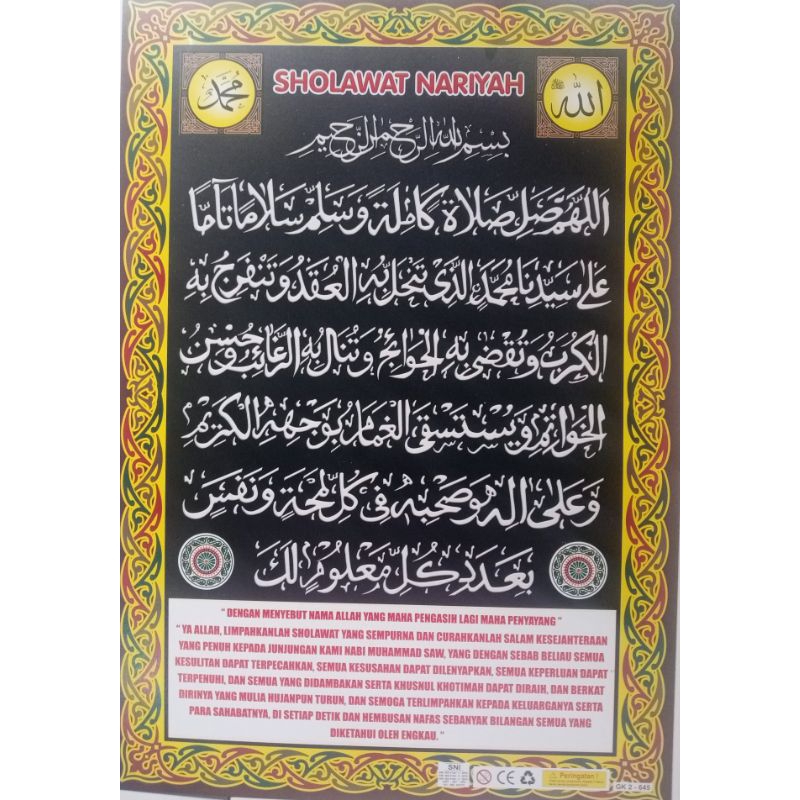 محمد
SHOLAWAT NARIYAH
الله
بِسْمِ اللهِ الرَّحْمٰنِ الرَّحِيْمِ
اَللّٰهُمَّ صَلِّ صَلَاةً كَامِلَةً وَسَلِّمْ سَلَامًا تَآمًّا
عَلٰى سَيِّدِنَا مُحَمَّدٍ الَّذِىْ تَنْحَلُّ بِهِ الْعُقَدُ وَتَنْفَرِجُ بِهِ
الْكُرَبُ وَتُقْضٰى بِهِ الْحَوَائِجُ وَتُنَالُ بِهِ الرَّغَائِبُ وَحُسْنُ
الْخَوَاتِمِ وَيُسْتَسْقَى الْغَمَامُ بِوَجْهِهِ الْكَرِيْمِ
وَعَلٰى اٰلِهِ وَصَحْبِهِ فِىْ كُلِّ لَمْحَةٍ وَنَفَسٍ
بِعَدَدِ كُلِّ مَعْلُوْمٍ لَكَ
" DENGAN MENYEBUT NAMA ALLAH YANG MAHA PENGASIH LAGI MAHA PENYAYANG "
" YA ALLAH, LIMPAHKANLAH SHOLAWAT YANG SEMPURNA DAN CURAHKANLAH SALAM KESEJAHTERAAN
YANG PENUH KEPADA JUNJUNGAN KAMI NABI MUHAMMAD SAW, YANG DENGAN SEBAB BELIAU SEMUA
KESULITAN DAPAT TERPECAHKAN, SEMUA KESUSAHAN DAPAT DILENYAPKAN, SEMUA KEPERLUAN DAPAT
TERPENUHI, DAN SEMUA YANG DIDAMBAKAN SERTA KHUSNUL KHOTIMAH DAPAT DIRAIH, DAN BERKAT
DIRINYA YANG MULIA HUJANPUN TURUN, DAN SEMOGA TERLIMPAHKAN KEPADA KELUARGANYA SERTA
PARA SAHABATNYA, DI SETIAP DETIK DAN HEMBUSAN NAFAS SEBANYAK BILANGAN SEMUA YANG
DIKETAHUI OLEH ENGKAU. "
SNI
CE
Peringatan !
GK 2 - 545